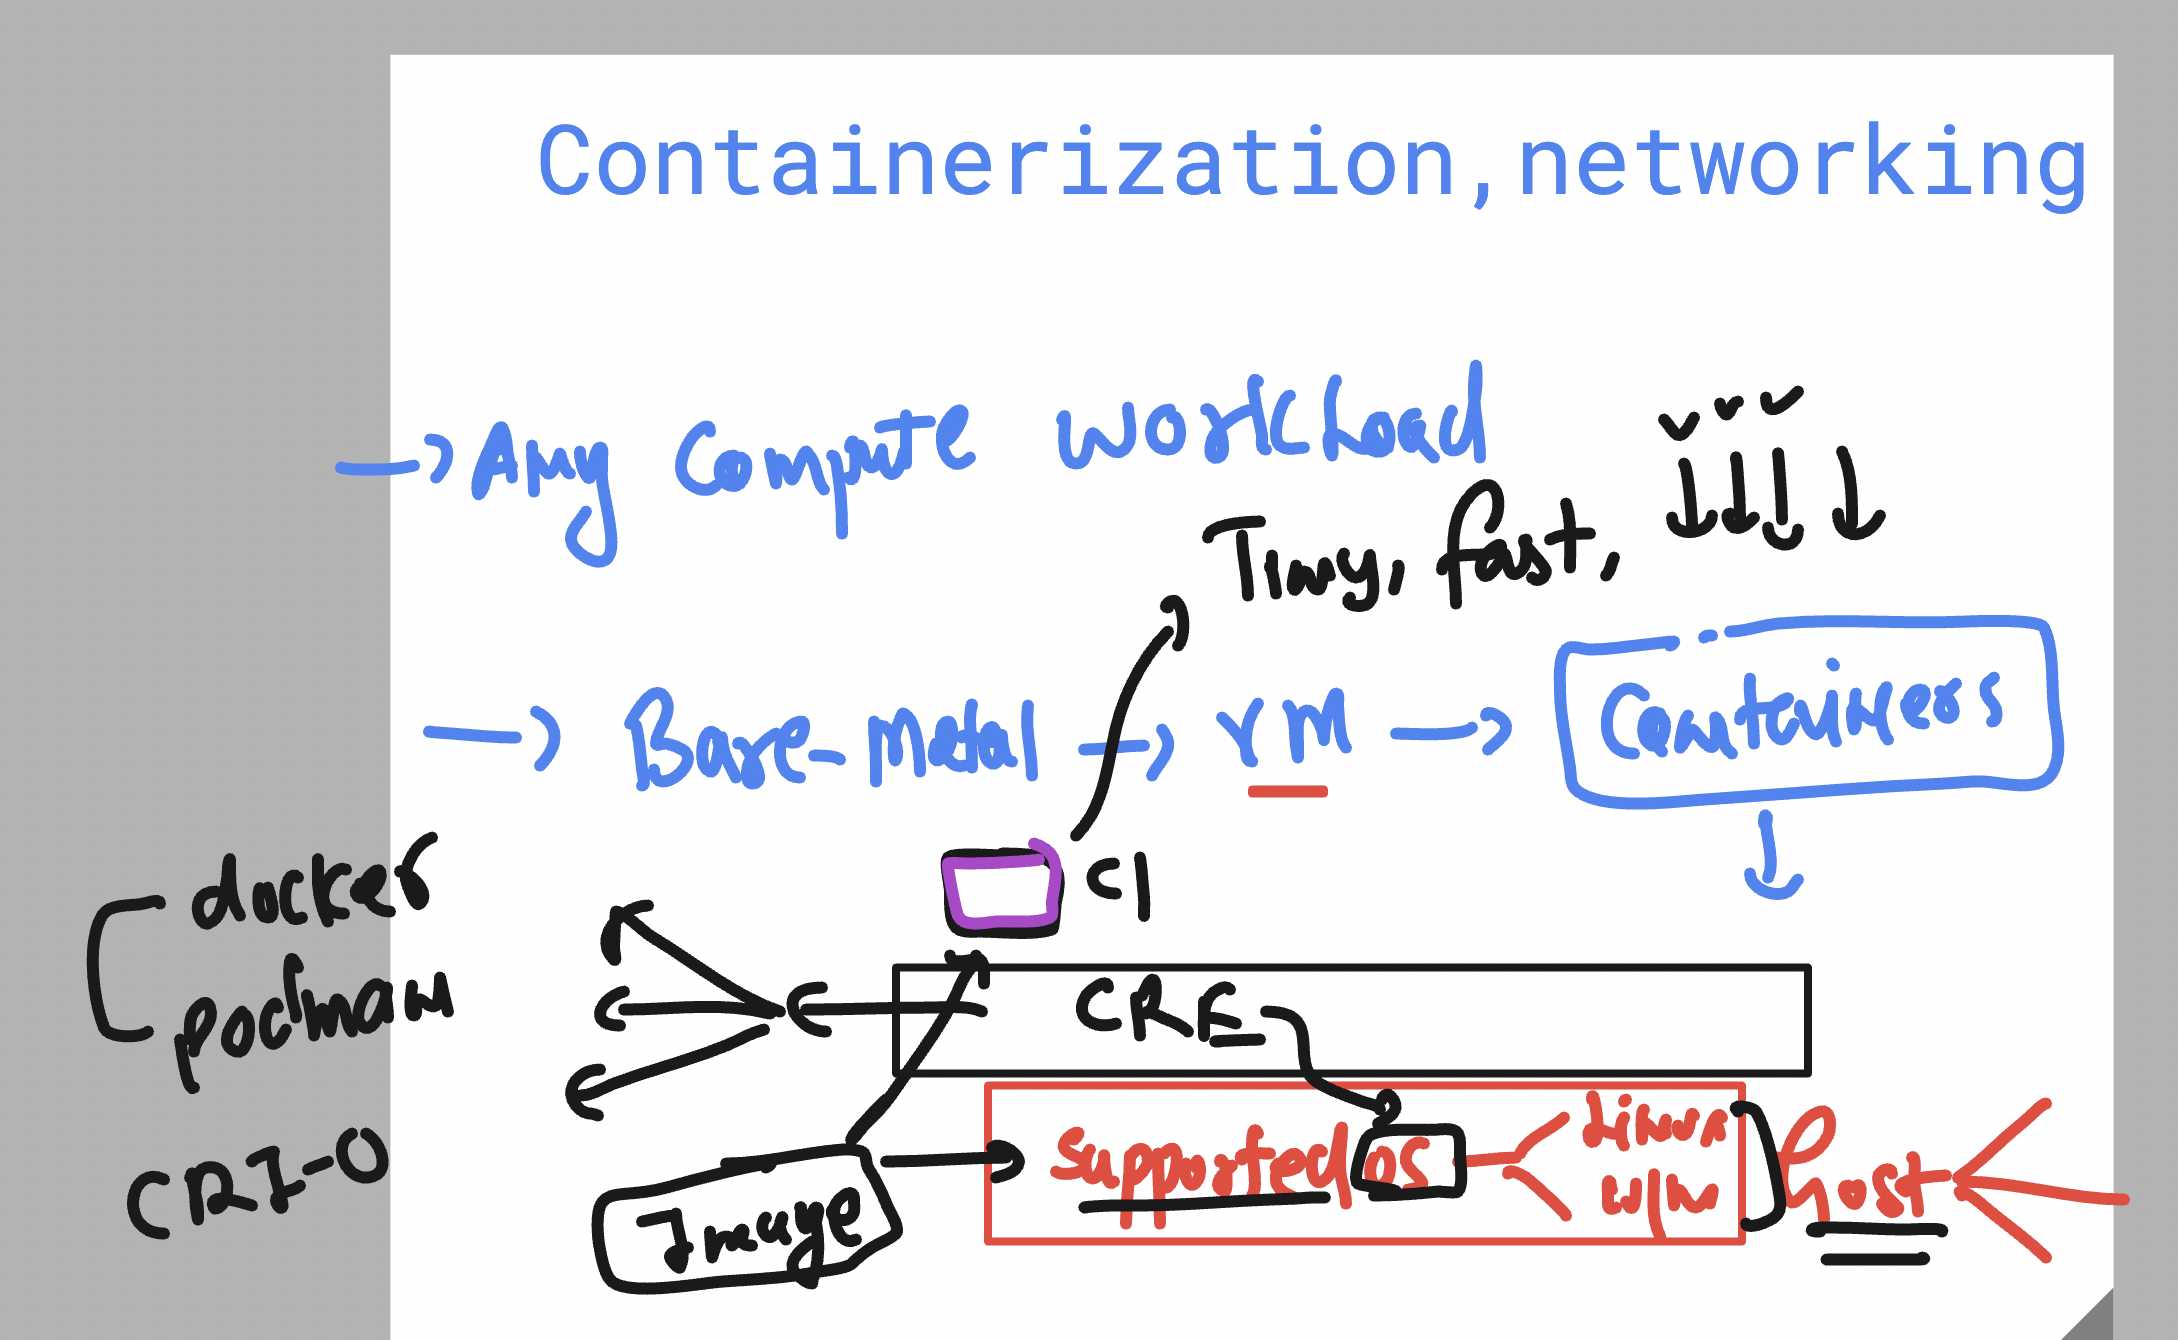 Containerization,networking
→ Any Compute workload
Tiny, fast,
→ Bare-Metal → VM → Containers
C1
docker
podman
CRI-O
CRE
Supported OS
Linux
Win
Host
Image